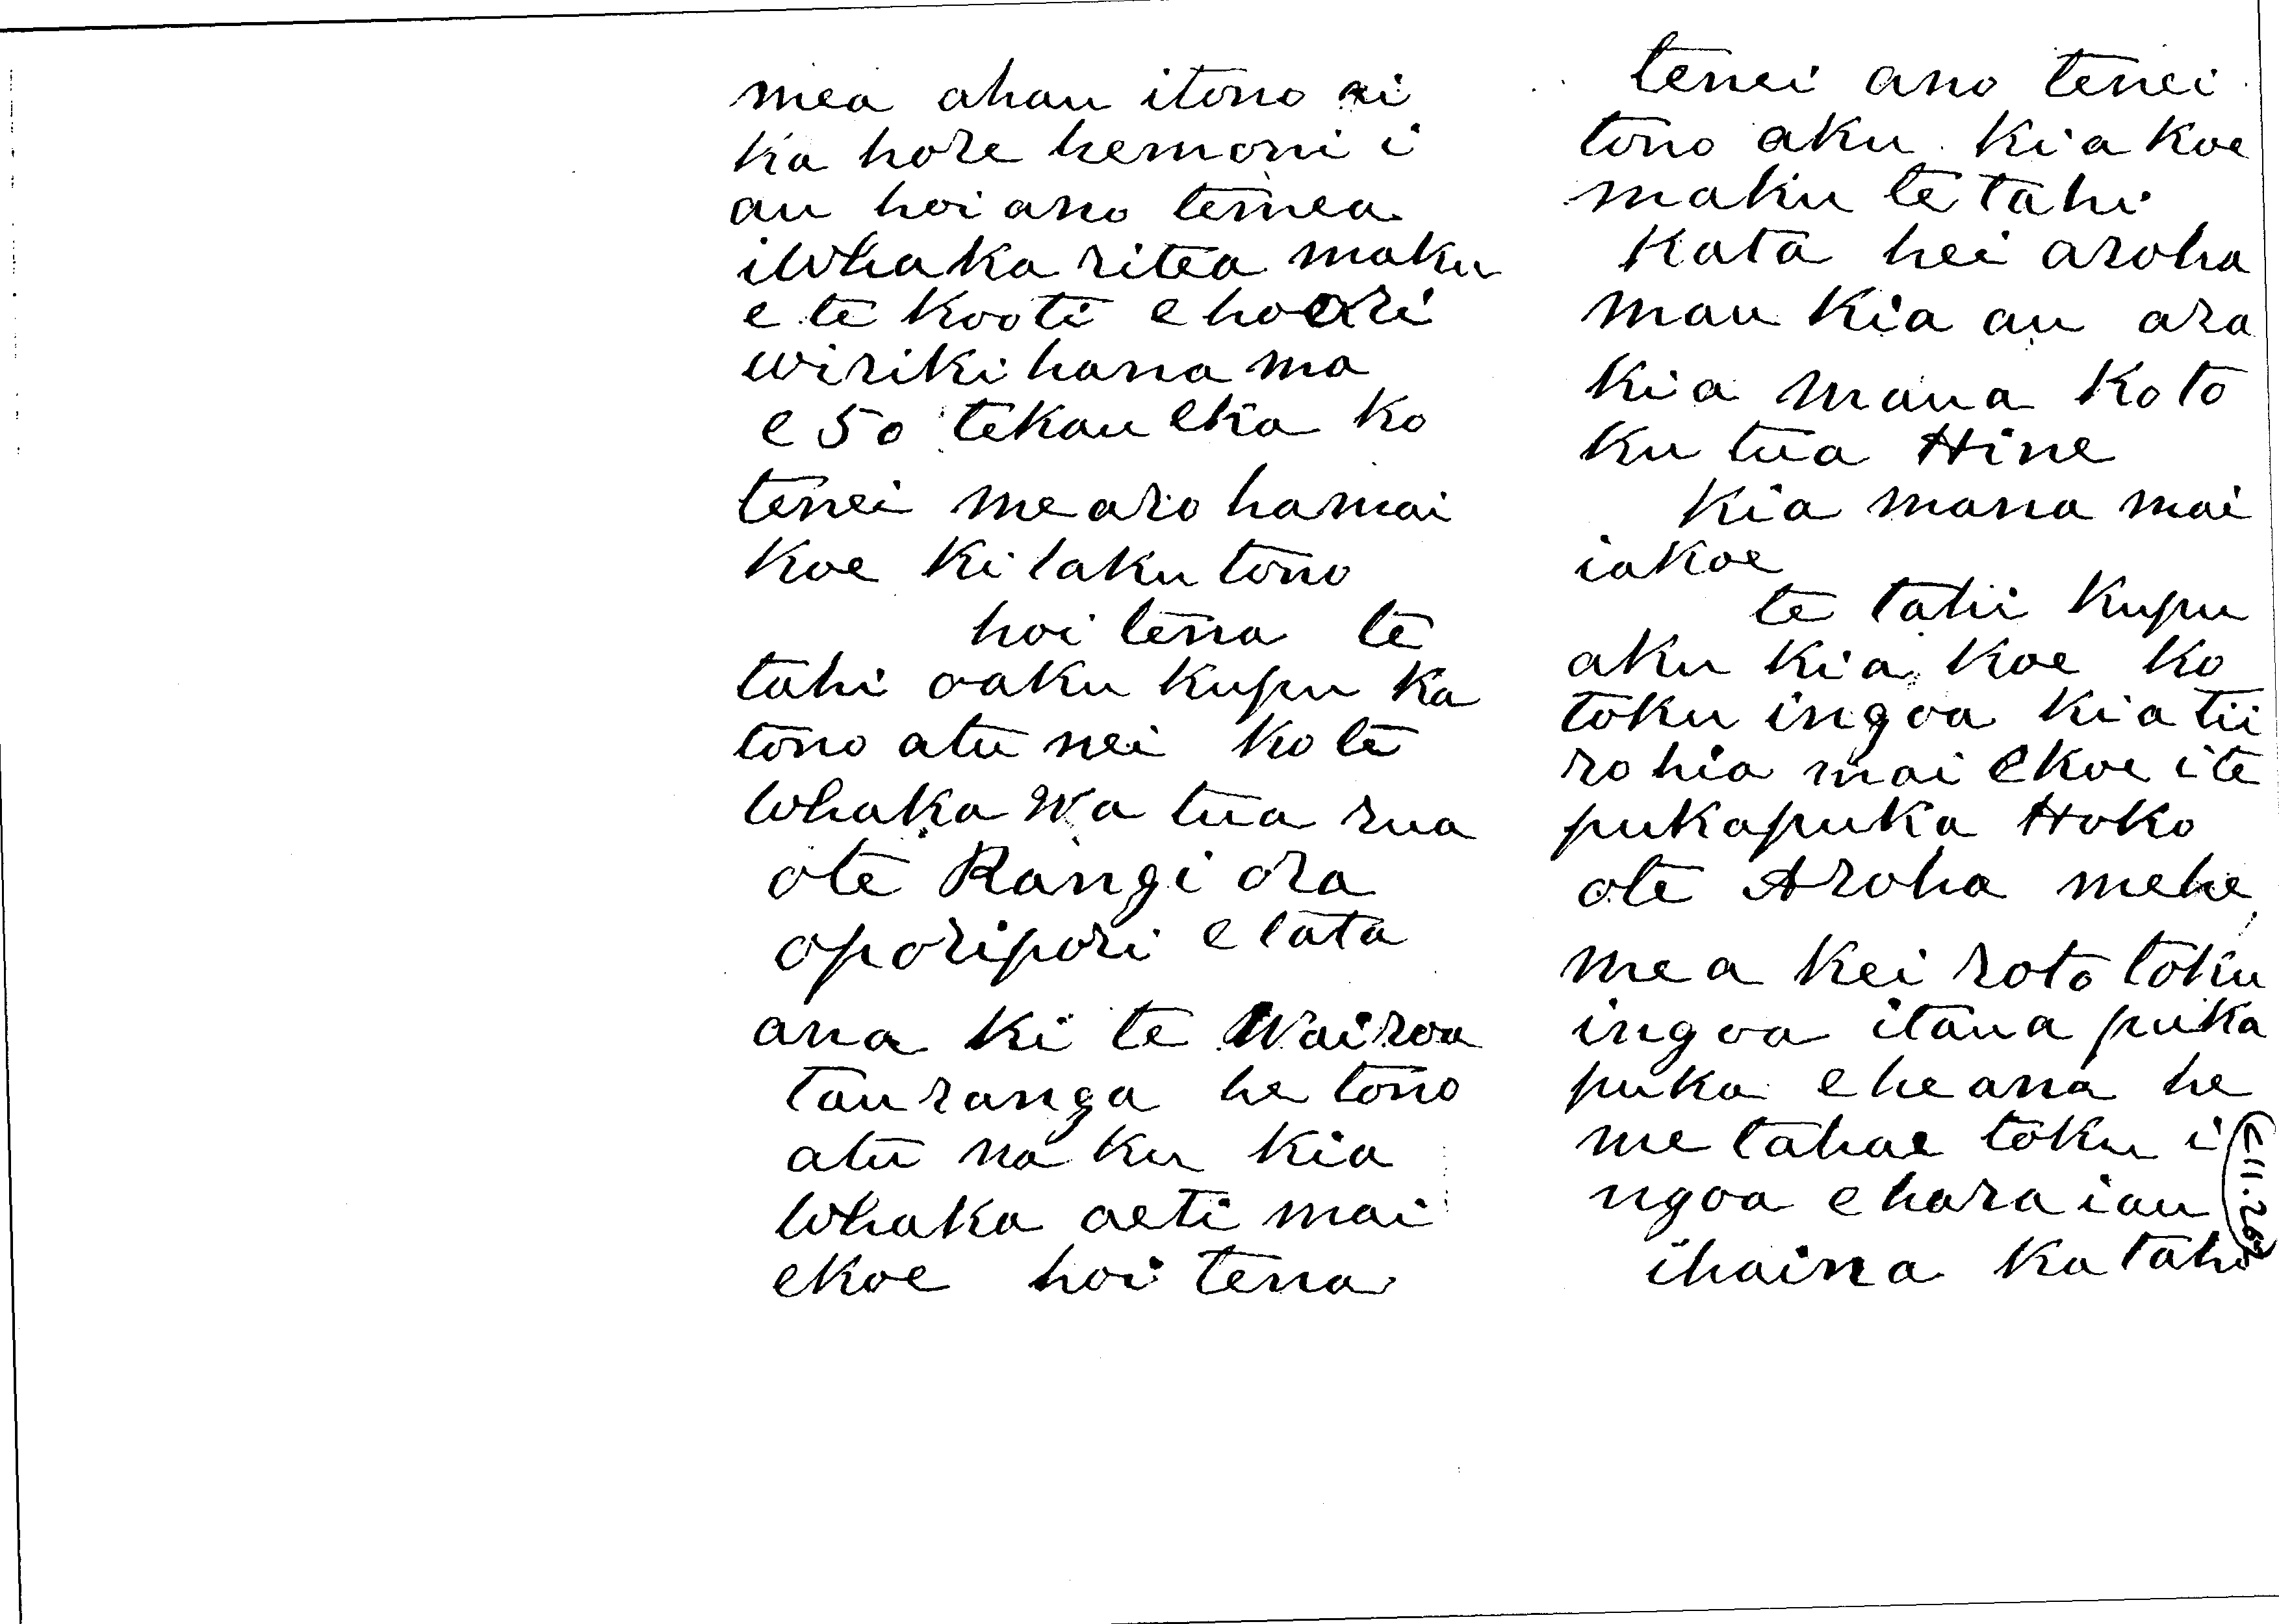 mea ahau itono ai
ka hore hemoni i
au hoi ano temea
iwhaka ritea maku
e te kooti e hoeri
wirikihana ma
e 50 tekau eka ko
tenei mearo hamai
koe ki taku tono
hoi tena te
tahi oaku kupu ka
tono atu nei ko te
whaka wa tua rua
ote Rangi ora
oporipori e tata
ana ki te Wairoa
tauranga he tono
atu na ku kia
whaka aeti mai
ekoe hoi tena
tenei ano tenei
tono aku kia koe
maku te tahi
kata hei aroha
mau kia au ara
kia mana ko to
ku tua Hine
kia mana mai
iakoe
te tahi kupu
aku kia koe ko
toku ingoa kia tii
rohia mai ekoe i te
pukapuka Hoko
ote Aroha mehe
mea kei roto toku
ingoa itaua puka
puka eheana he
me tahae toku i
ngoa ehara iau
ihaina ka tahi